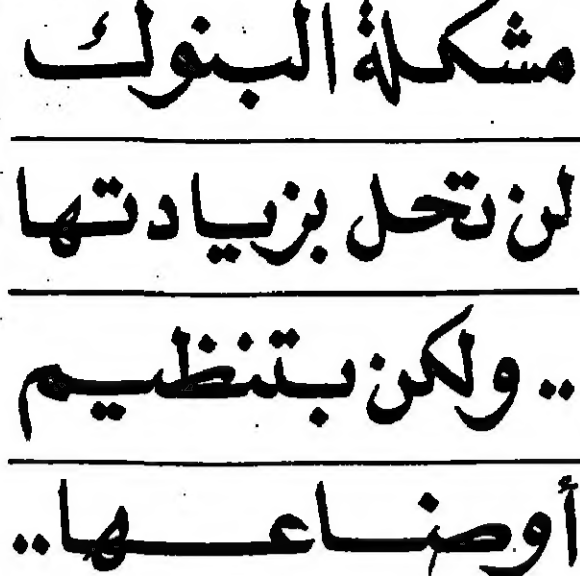 مشكلة البنوك
لن تحل بزيادتها
.. ولكن بتنظيم
أوضاعها..